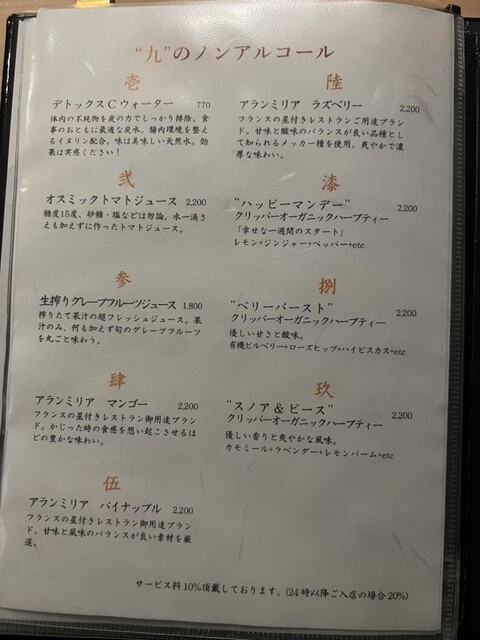 “九”のノンアルコール
壱
デトックスCウォーター 770
体内の不純物を炭の力でしっかり排除。食
事のおともに最適な炭水。腸内環境を整え
るイヌリン配合。味は美味しい天然水。効
果は実感ください！
弐
オスミックトマトジュース 2,200
糖度15度、砂糖・塩などは勿論、水一滴さ
えも加えずに作ったトマトジュース。
参
生搾りグレープフルーツジュース 1,800
搾りたて果汁の超フレッシュジュース。果
汁のみ、何も加えず旬のグレープフルーツ
を丸ごと味わう。
肆
アランミリア マンゴー 2,200
フランスの星付きレストラン御用達ブラン
ド。かじった時の食感を想い起こさせるほ
どの豊かな味わい。
伍
アランミリア パイナップル 2,200
フランスの星付きレストラン御用達ブラン
ド。甘味と風味のバランスが良い素材を厳
選。
陸
アランミリア ラズベリー 2,200
フランスの星付きレストランご用達ブラン
ド。甘味と酸味のバランスが良い品種とし
て知られるメッカー種を使用。爽やかで濃
厚な味わい。
漆
“ハッピーマンデー” 2,200
クリッパーオーガニックハーブティー
「幸せな一週間のスタート」
レモン+ジンジャー+ペッパー+etc
捌
“ベリーバースト” 2,200
クリッパーオーガニックハーブティー
優しい甘さと酸味。
有機ビルベリー+ローズヒップ+ハイビスカス+etc
玖
“スノア＆ピース” 2,200
クリッパーオーガニックハーブティー
優しい香りと爽やかな風味。
カモミール+ラベンダー+レモンバーム+etc
サービス料10%頂戴しております。(24時以降ご入店の場合20%)